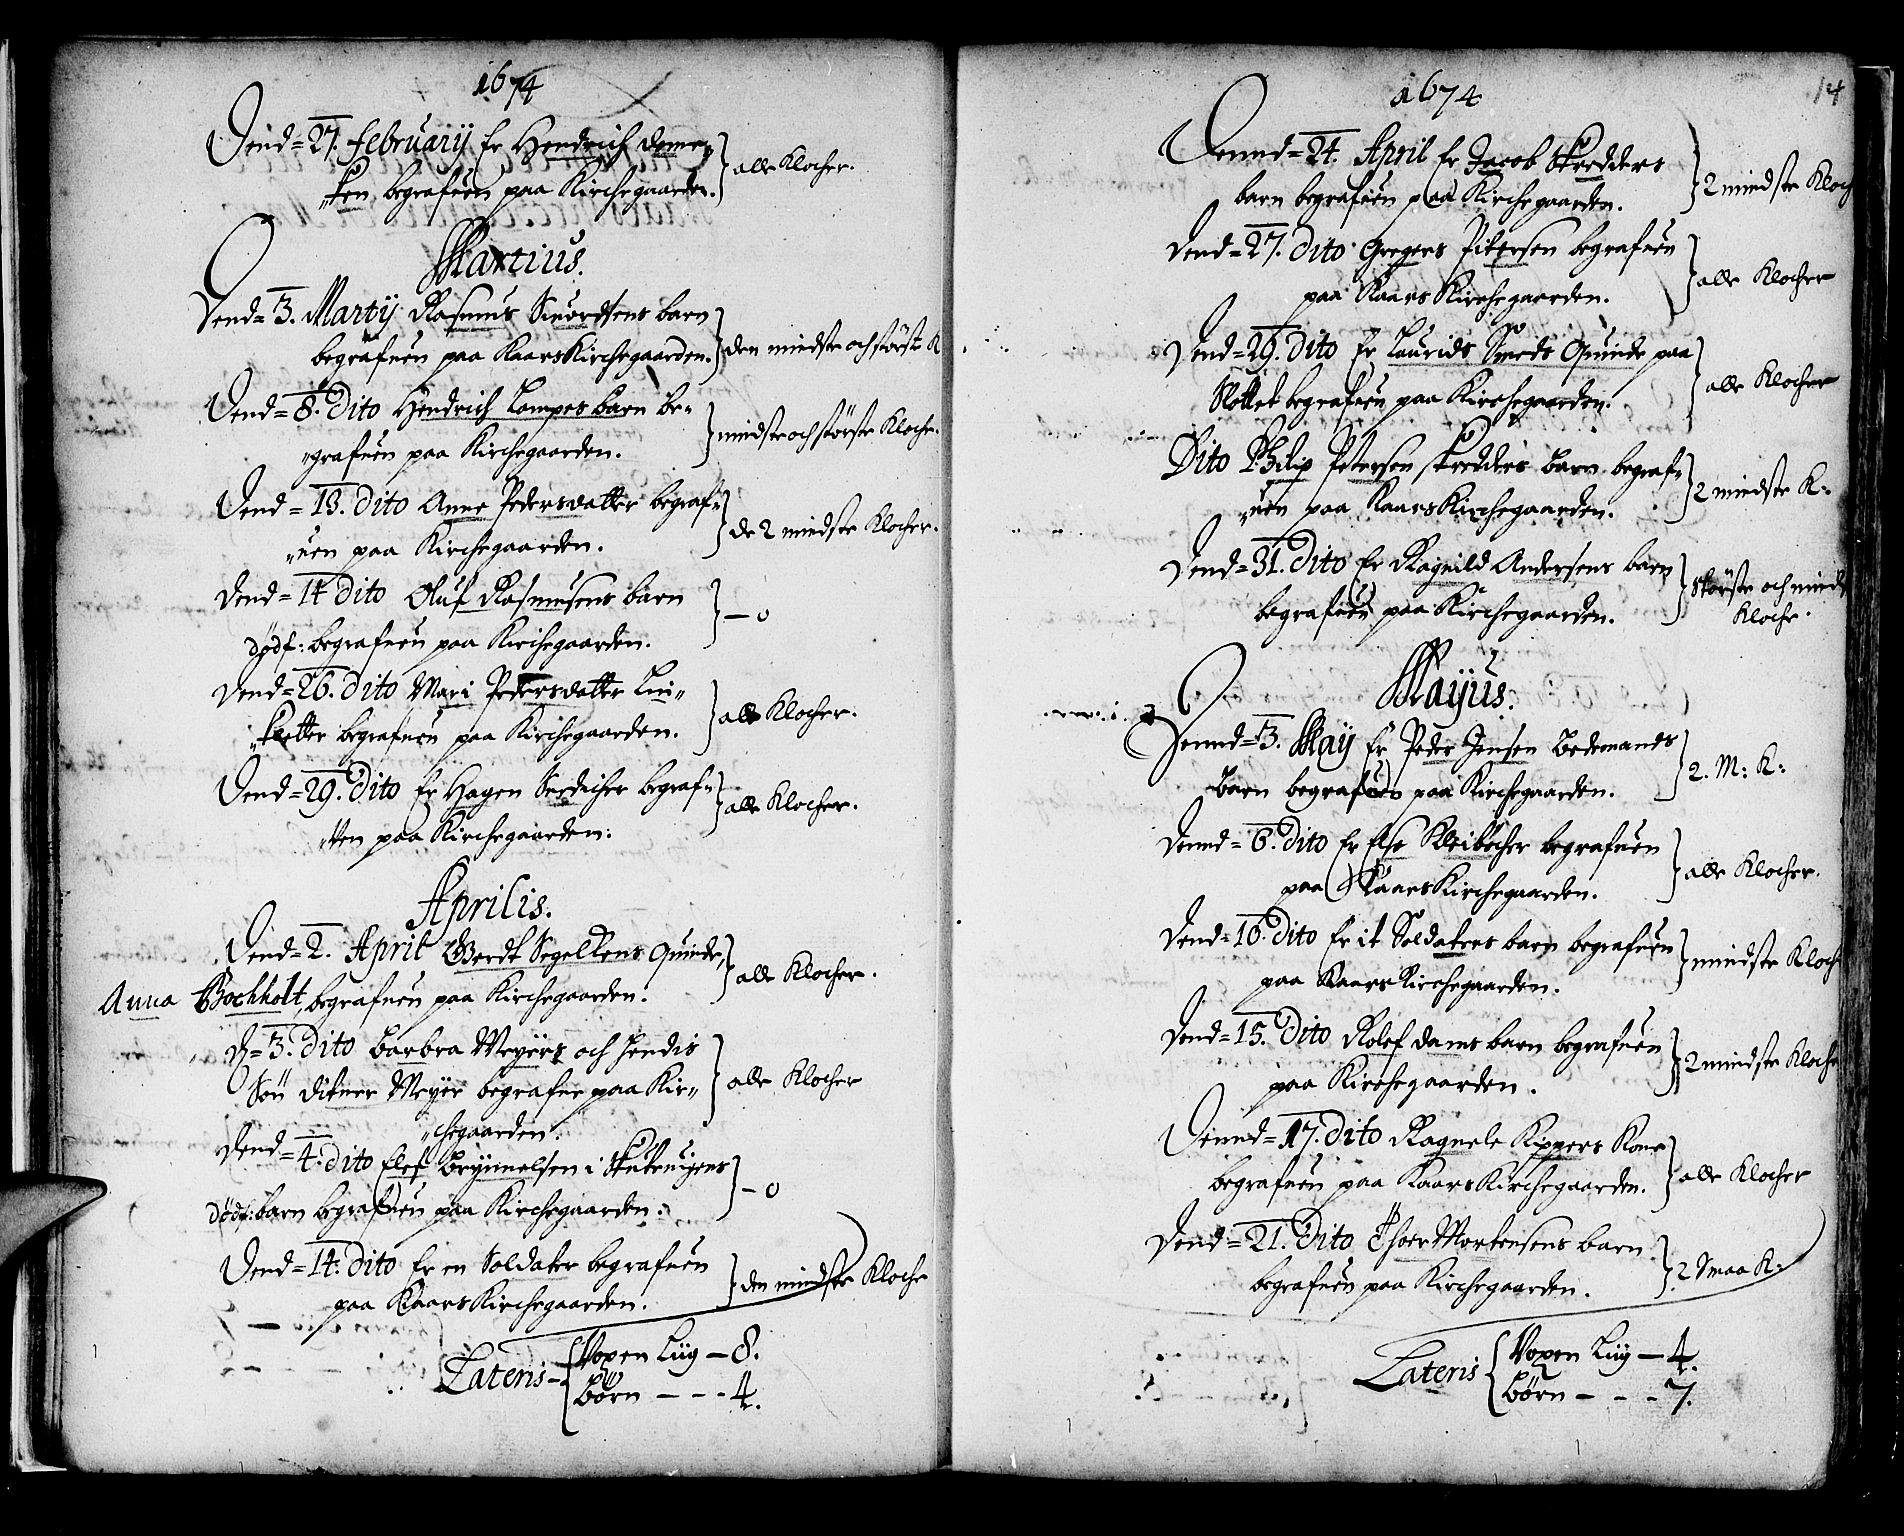 1674
Dend= 27. february Er Hendrich deme=
"ken begrafuen paa Kirchegaarden. } alle Klocher.
Martius.
Dend= 3. Martij Rasmus Siuordsens barn
begrafuen paa Kaars Kirchegaarden. } den mindste och störste K
Dend= 8. dito Hendrich Lampes barn be=
"grafuen paa Kirchegaarden. } mindste och störste Kloche.
Dend= 13. dito Anne Pedersdatter begraf=
"uen paa Kirchegaarden. } de 2 mindste Klocher.
Dend= 14 dito Oluf Rasmusens barn } — 0
dødf: begrafuen paa Kirchegaarden.
Dend= 26. dito Mari Pedersdatter Lin=
begrafuen paa Kirchegaarden. } alle Klocher.
Dend= 29. dito Er Hagen begraf=
"uen paa Kirchegaarden. } alle Klocher.
Aprilis.
Dend= 2. April Gerdt Segelkens Quinde,
Anna Bochholt, begrafuen paa Kirchegaarden. } alle Klocher.
D= 3. dito Barbra Meyers och hendis
Sön ditmer Meyer begrafne paa Kir= } alle Klocher
"chegaarden.
Dend= 4. dito Elef Brynnelsen i Skuteuigens } — 0
dödf: barn begrafuen paa Kirchegaarden.
Dend= 14. dito Er en Soldater begrafuen
paa Kaars Kirchegaarden. } den mindste Kloche
Lateris — { Voxen Liig — 8.
Börn — — - 4.
14
1674
Dennd= 24. April Er Jacob Skredders
barn begrafuen paa Kirchegaarden. } 2 mindste Kloch
Dend= 27. dito Gregers Pitersen begrafuen
paa Kaars Kirchegaarden. } alle Klocher
Dend= 29. dito Er Laurids Smeds Quinde paa
Slottet begrafuen paa Kirchegaarden. } alle Klocher
Dito Philip Petersen skredders barn begraf=
"uen paa Kaars Kirchegaarden. } 2 mindste K:
Dend= 31. dito Er Ragnild Andersens barn } Störste och mindst
begrafuen paa Kirchegaarden. Kloche.
Mayus.
Dennd= 3. May Er Peder Jensen Bedemands
barn begrafuen paa Kirchegaarden. } 2. M: K:
Dennd= 6. dito Er Else Kleibecher begrafuen
paa Kaars Kirchegaarden. } alle Klocher.
Dend= 10. dito Er it Soldaters barn begrafuen
paa Kaars Kirchegaarden. } mindste Kloch
Dend= 15. dito Rolef dams barn begrafuen
paa Kirchegaarden. } 2 mindste Kloche
Dennd= 17. dito Ragnele Kippers Kone
begrafuen paa Kaars Kirchegaarden. } alle Klocher
Dend= 21. dito Thoer Mortensens barn
begrafuen paa Kirchegaarden. } 2 smaa K:
Lateris { Voxen Liig — 4.
Börn — - - 7.